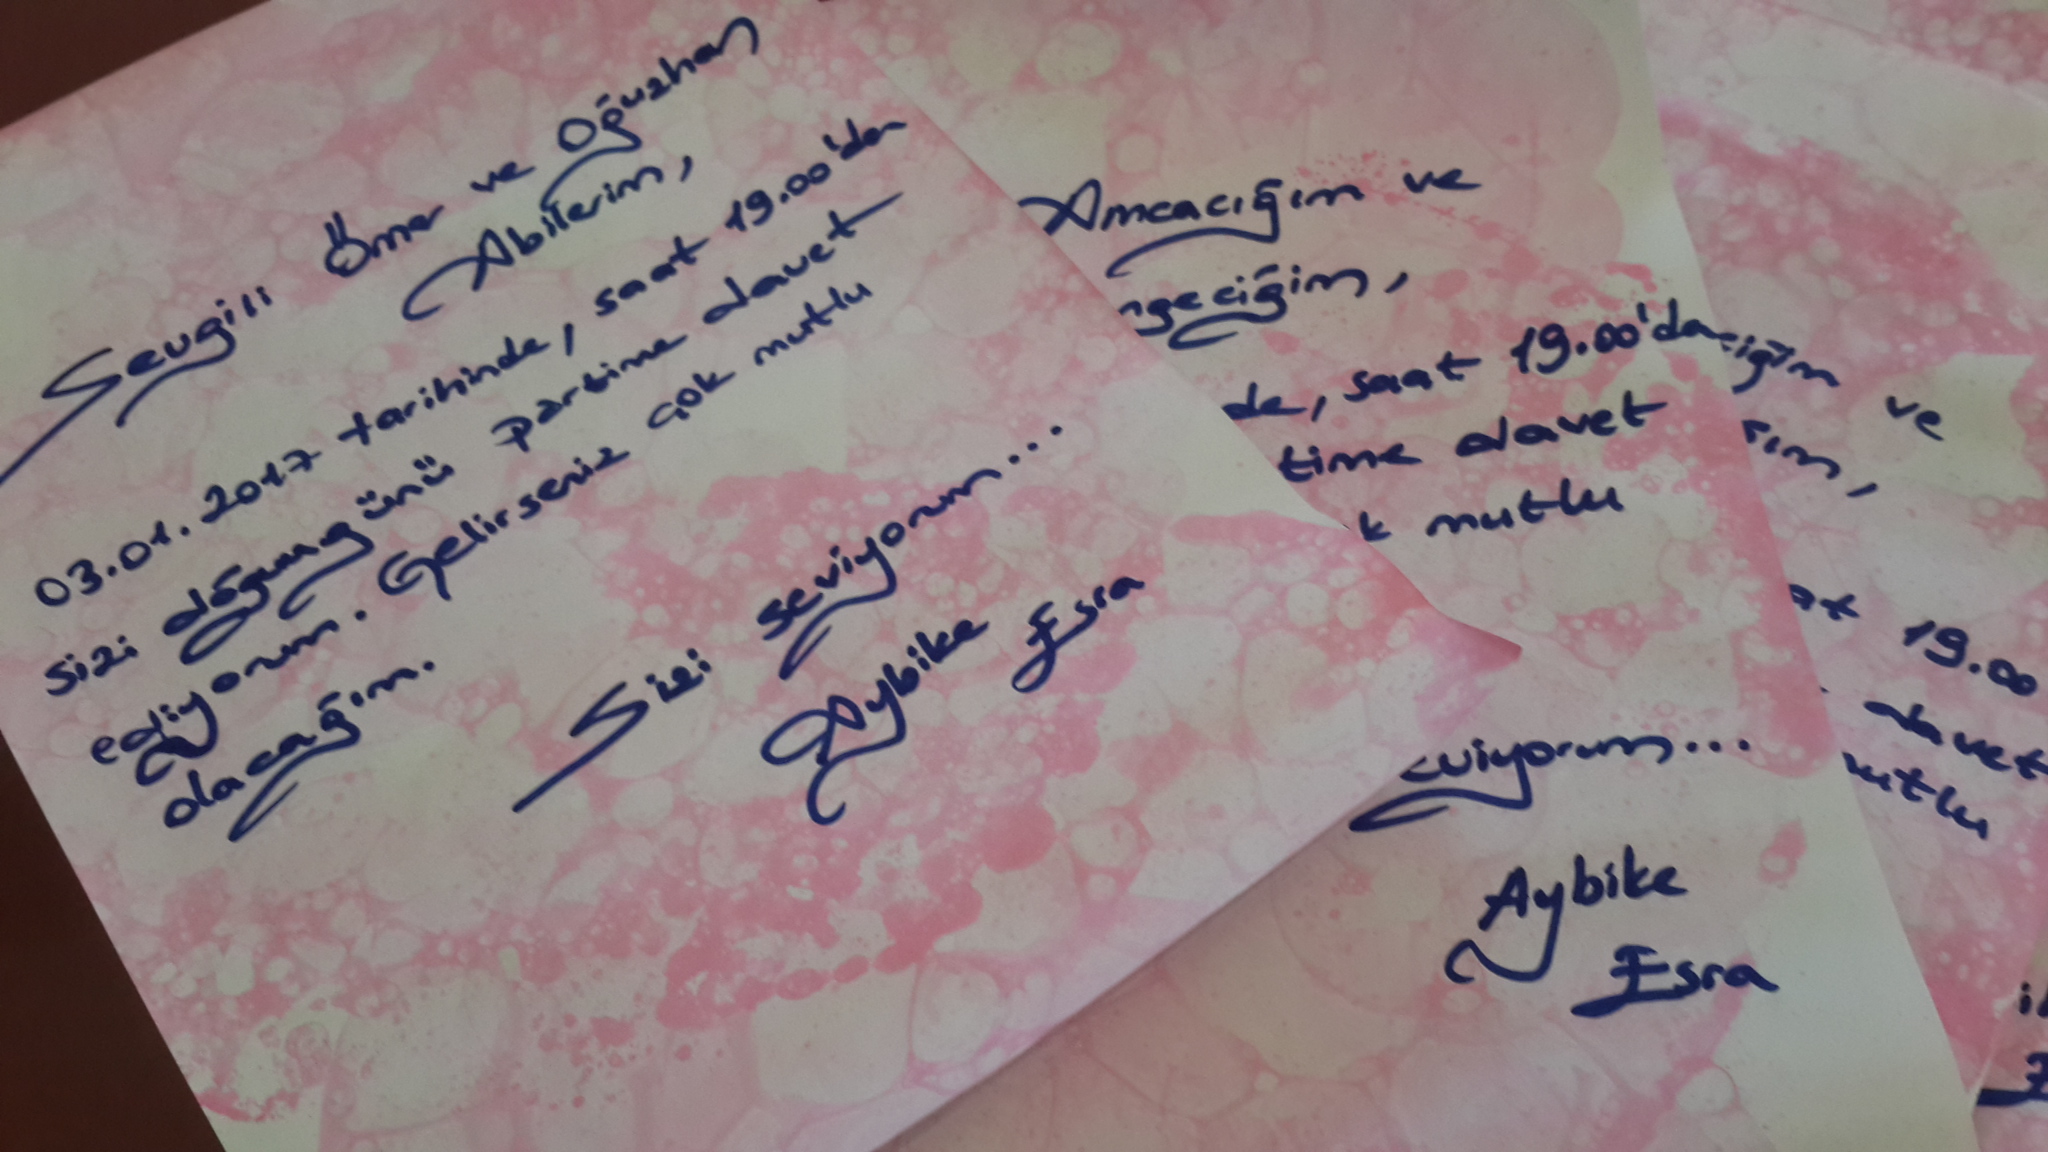 Sevgili Ömer ve Oğuzhan
Abilerim,
03.01.2017 tarihinde, saat 19.00'da
sizi doğum günü partime davet
ediyorum. Gelirseniz çok mutlu
olacağım.
Sizi seviyorum...
Aybike Esra
Amcacığım ve
ngeciğim,
de, saat 19.00'da
time davet
k mutlu
eviyorum...
Aybike
Esra
ciğim ve
rım,
at 19.00
davet
mutlu